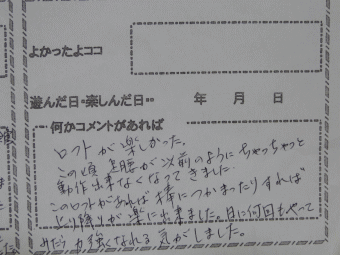 よかったよココ
遊んだ日・楽しんだ日・・ 年 月 日
何かコメントがあれば
ロフトが楽しかった。
この頃 足腰が以前のようにちゃっちゃっと
動作出来なくなってきました
このロフトがあれば 棒につかまったりすれば
上り降りが楽に出来ました。日に何回もやって
みたら 力強くなれる気がしました。